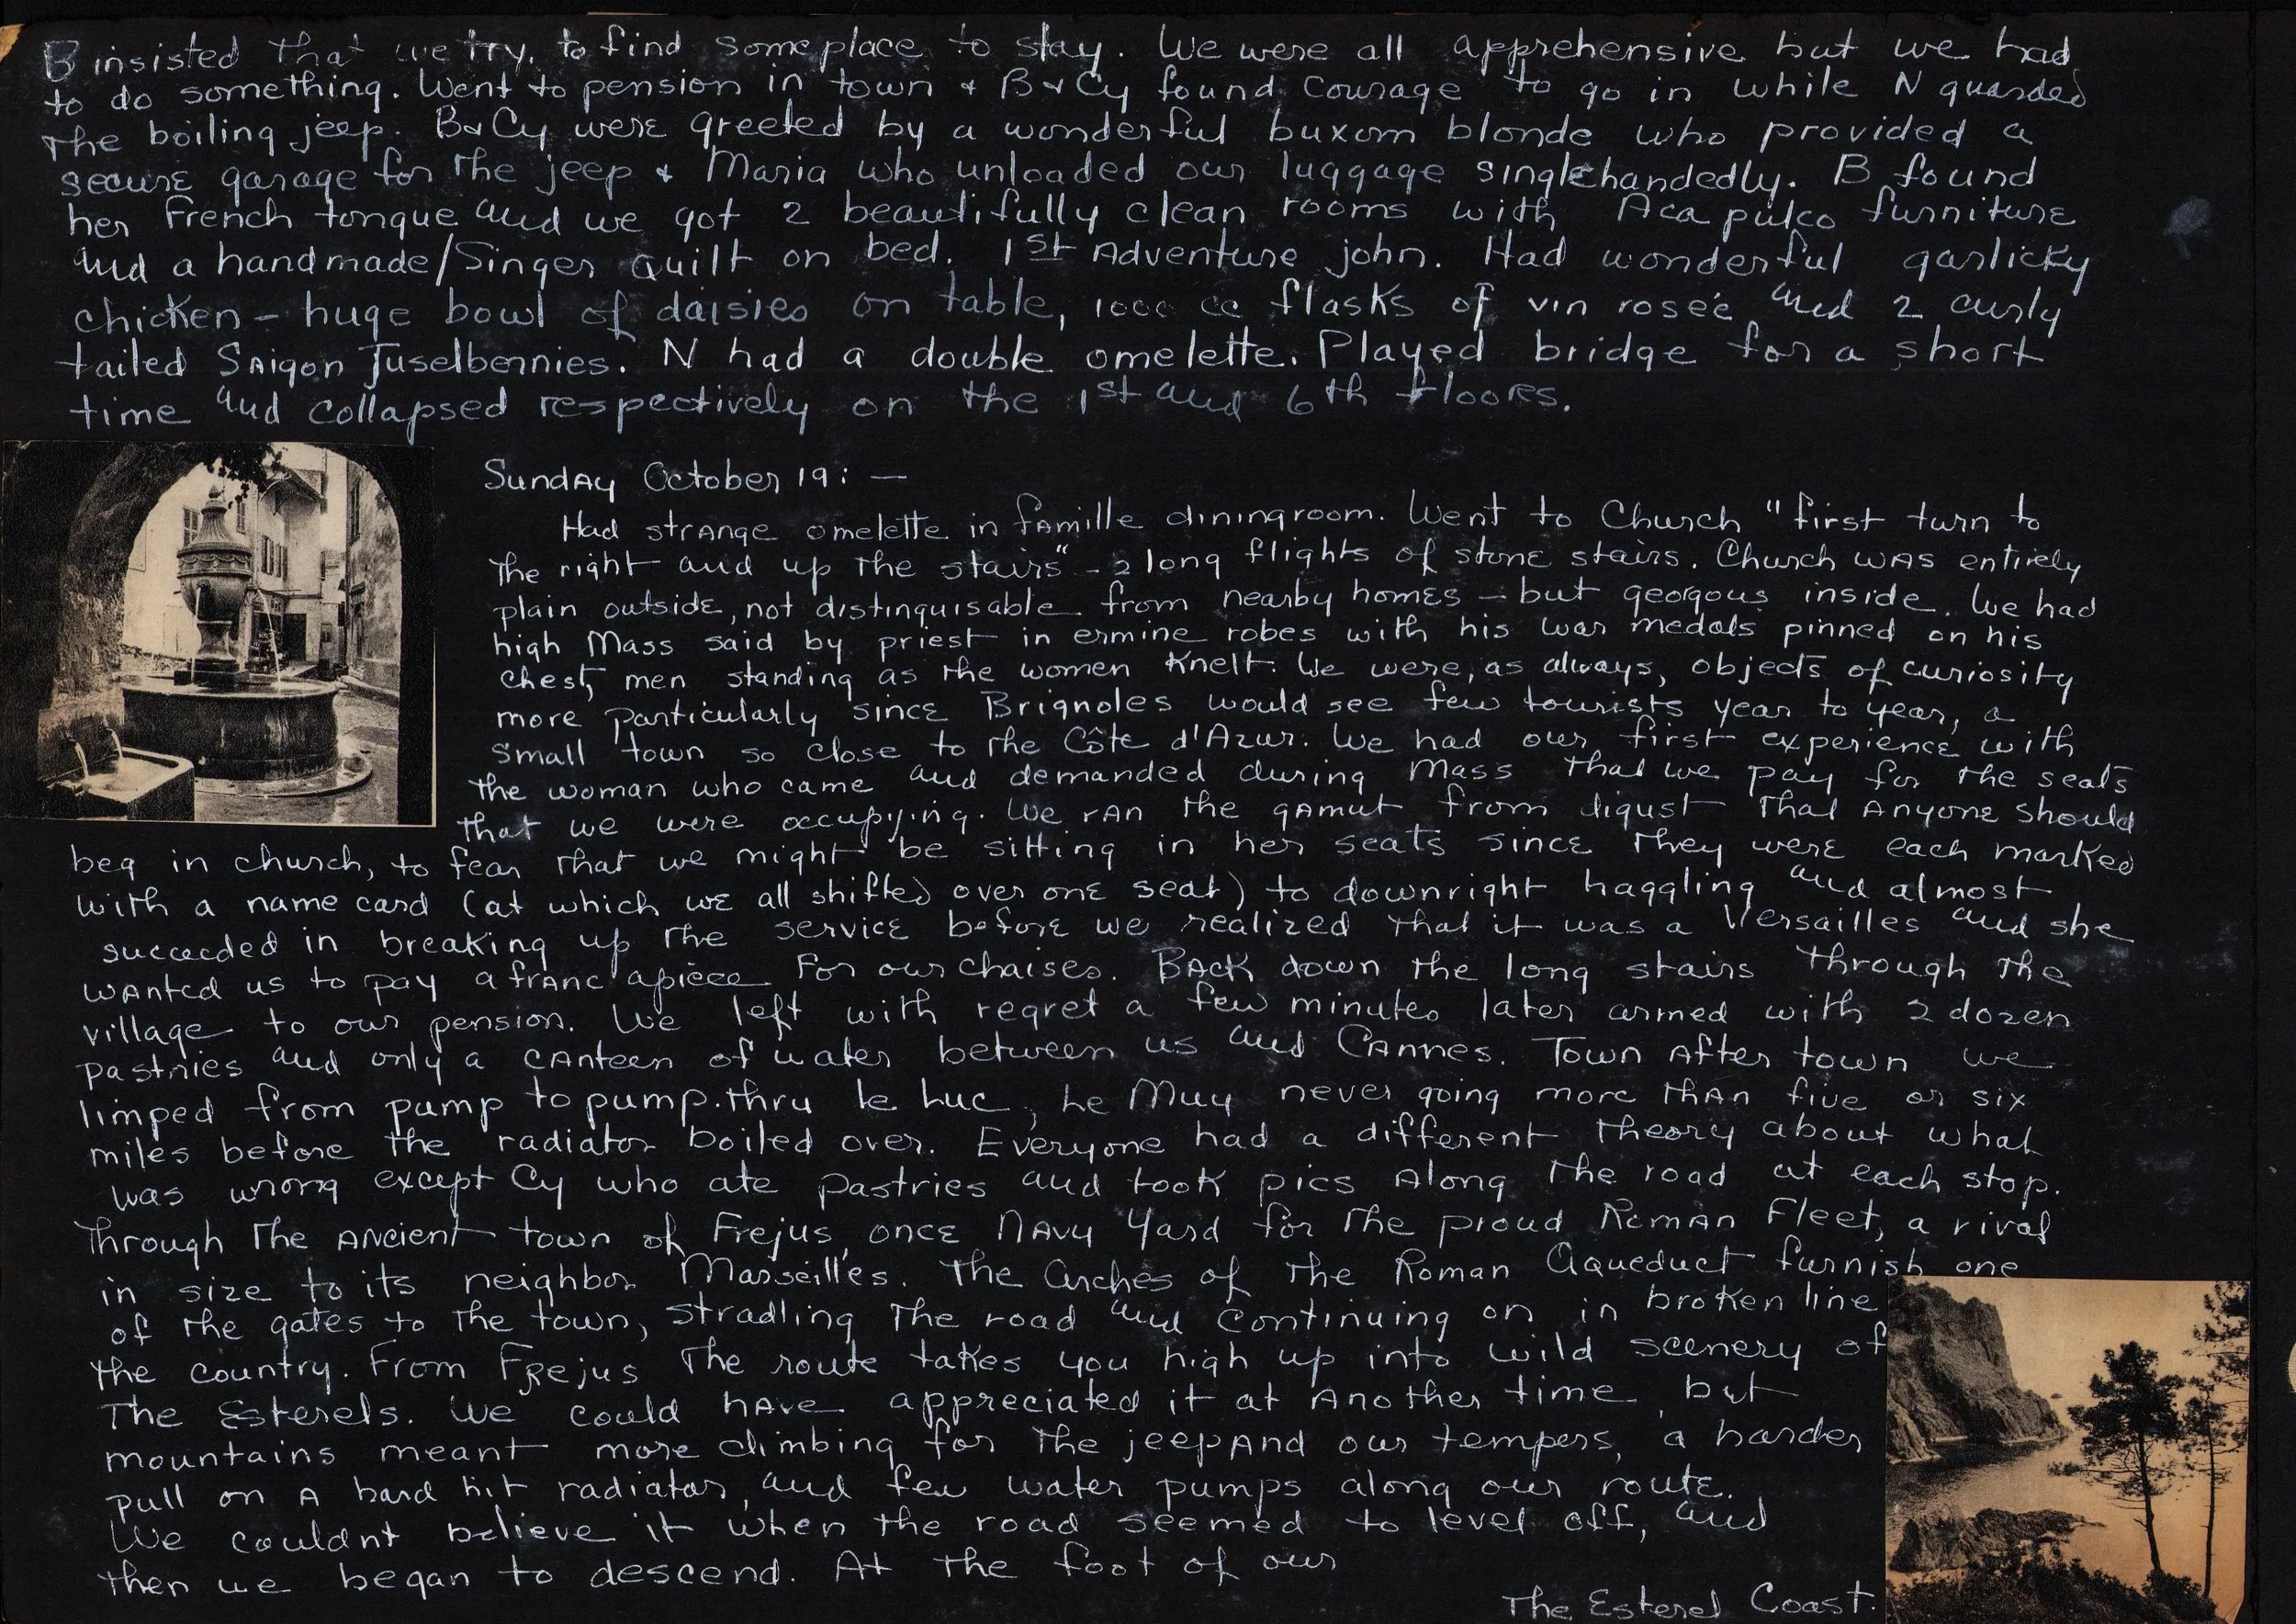 B insisted that we try, to find someplace to stay. We were all apprehensive but we had
to do something. Went to pension in town & B & Cy found courage to go in while N guarded
the boiling jeep. B & Cy were greeted by a wonderful buxom blonde who provided a
secure garage for the jeep & Maria who unloaded our luggage singlehandedly. B found
her French tongue and we got 2 beautifully clean rooms with Acapulco furniture
and a handmade/Singer quilt on bed. 1st Adventure john. Had wonderful garlicky
chicken - huge bowl of daisies on table, 1000 cc flasks of vin roseé and 2 curly
tailed Saigon Tuselbernnies. N had a double omelette. Played bridge for a short
time and collapsed respectively on the 1st and 6th floors.
Sunday October 19: —
Had strange omelette in famille diningroom. Went to Church "first turn to
the right and up the stairs" - 2 long flights of stone stairs. Church was entirely
plain outside, not distinguisable from nearby homes - but georgous inside. We had
high Mass said by priest in ermine robes with his war medals pinned on his
chest, men standing as the women knelt. We were, as always, objects of curiosity
more particularly since Brignoles would see few tourists year to year, a
small town so close to the Côte d'Azur. We had our first experience with
the woman who came and demanded during Mass that we pay for the seats
that we were occupying. We ran the gamut from digust that anyone should
beg in church, to fear that we might be sitting in her seats since they were each marked
with a name card (at which we all shifted over one seat) to downright haggling and almost
succeeded in breaking up the service before we realized that it was a Versailles and she
wanted us to pay a franc apiece for our chaises. Back down the long stairs through the
village to our pension. We left with regret a few minutes later armed with 2 dozen
pastries and only a canteen of water between us and Cannes. Town after town we
limped from pump to pump. thru le Luc, Le Muy never going more than five or six
miles before the radiator boiled over. Everyone had a different theory about what
was wrong except Cy who ate pastries and took pics along the road at each stop.
Through the ancient town of Frejus, once Navy Yard for the proud Roman Fleet, a rival
in size to its neighbor Marseilles. The arches of the Roman Aqueduct furnish one
of the gates to the town, stradling the road and continuing on in broken line
the country. From Frejus the route takes you high up into wild scenery of
The Esterels. We could have appreciated it at another time, but
mountains meant more climbing for the jeep and our tempers, a harder
pull on a hard hit radiator, and few water pumps along our route.
We couldnt believe it when the road seemed to level off, and
then we began to descend. At the foot of our
The Esterel Coast.